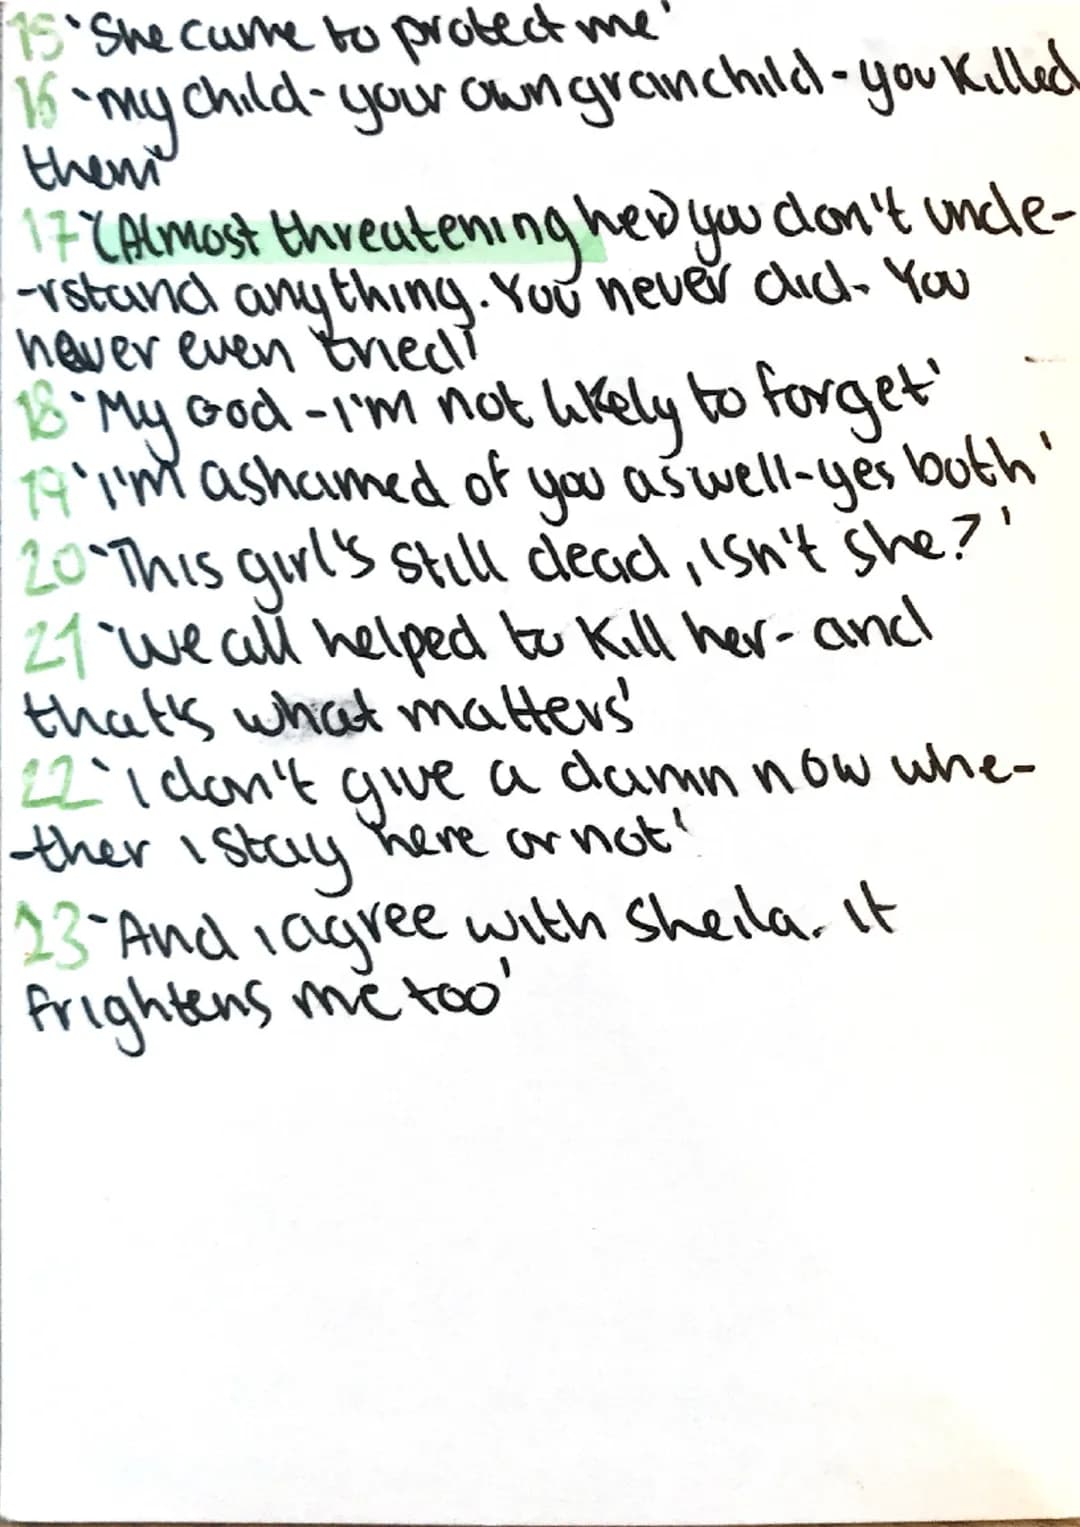 15 'She came to protect me'
16 'my child - your own granchild - you killed
them'
17 '(Almost threatening her) you don't unde-
-rstand anything. You never did. You
never even tried!'
18 'My God - I'm not likely to forget'
19 'I'm ashamed of you aswell - yes both'
20 'This girl's still dead, isn't she?'
21 'We all helped to kill her - and
that's what matters'
22 'I don't give a damn now whe-
-ther I stay here or not'
23 'And I agree with Sheila. It
frightens me too'